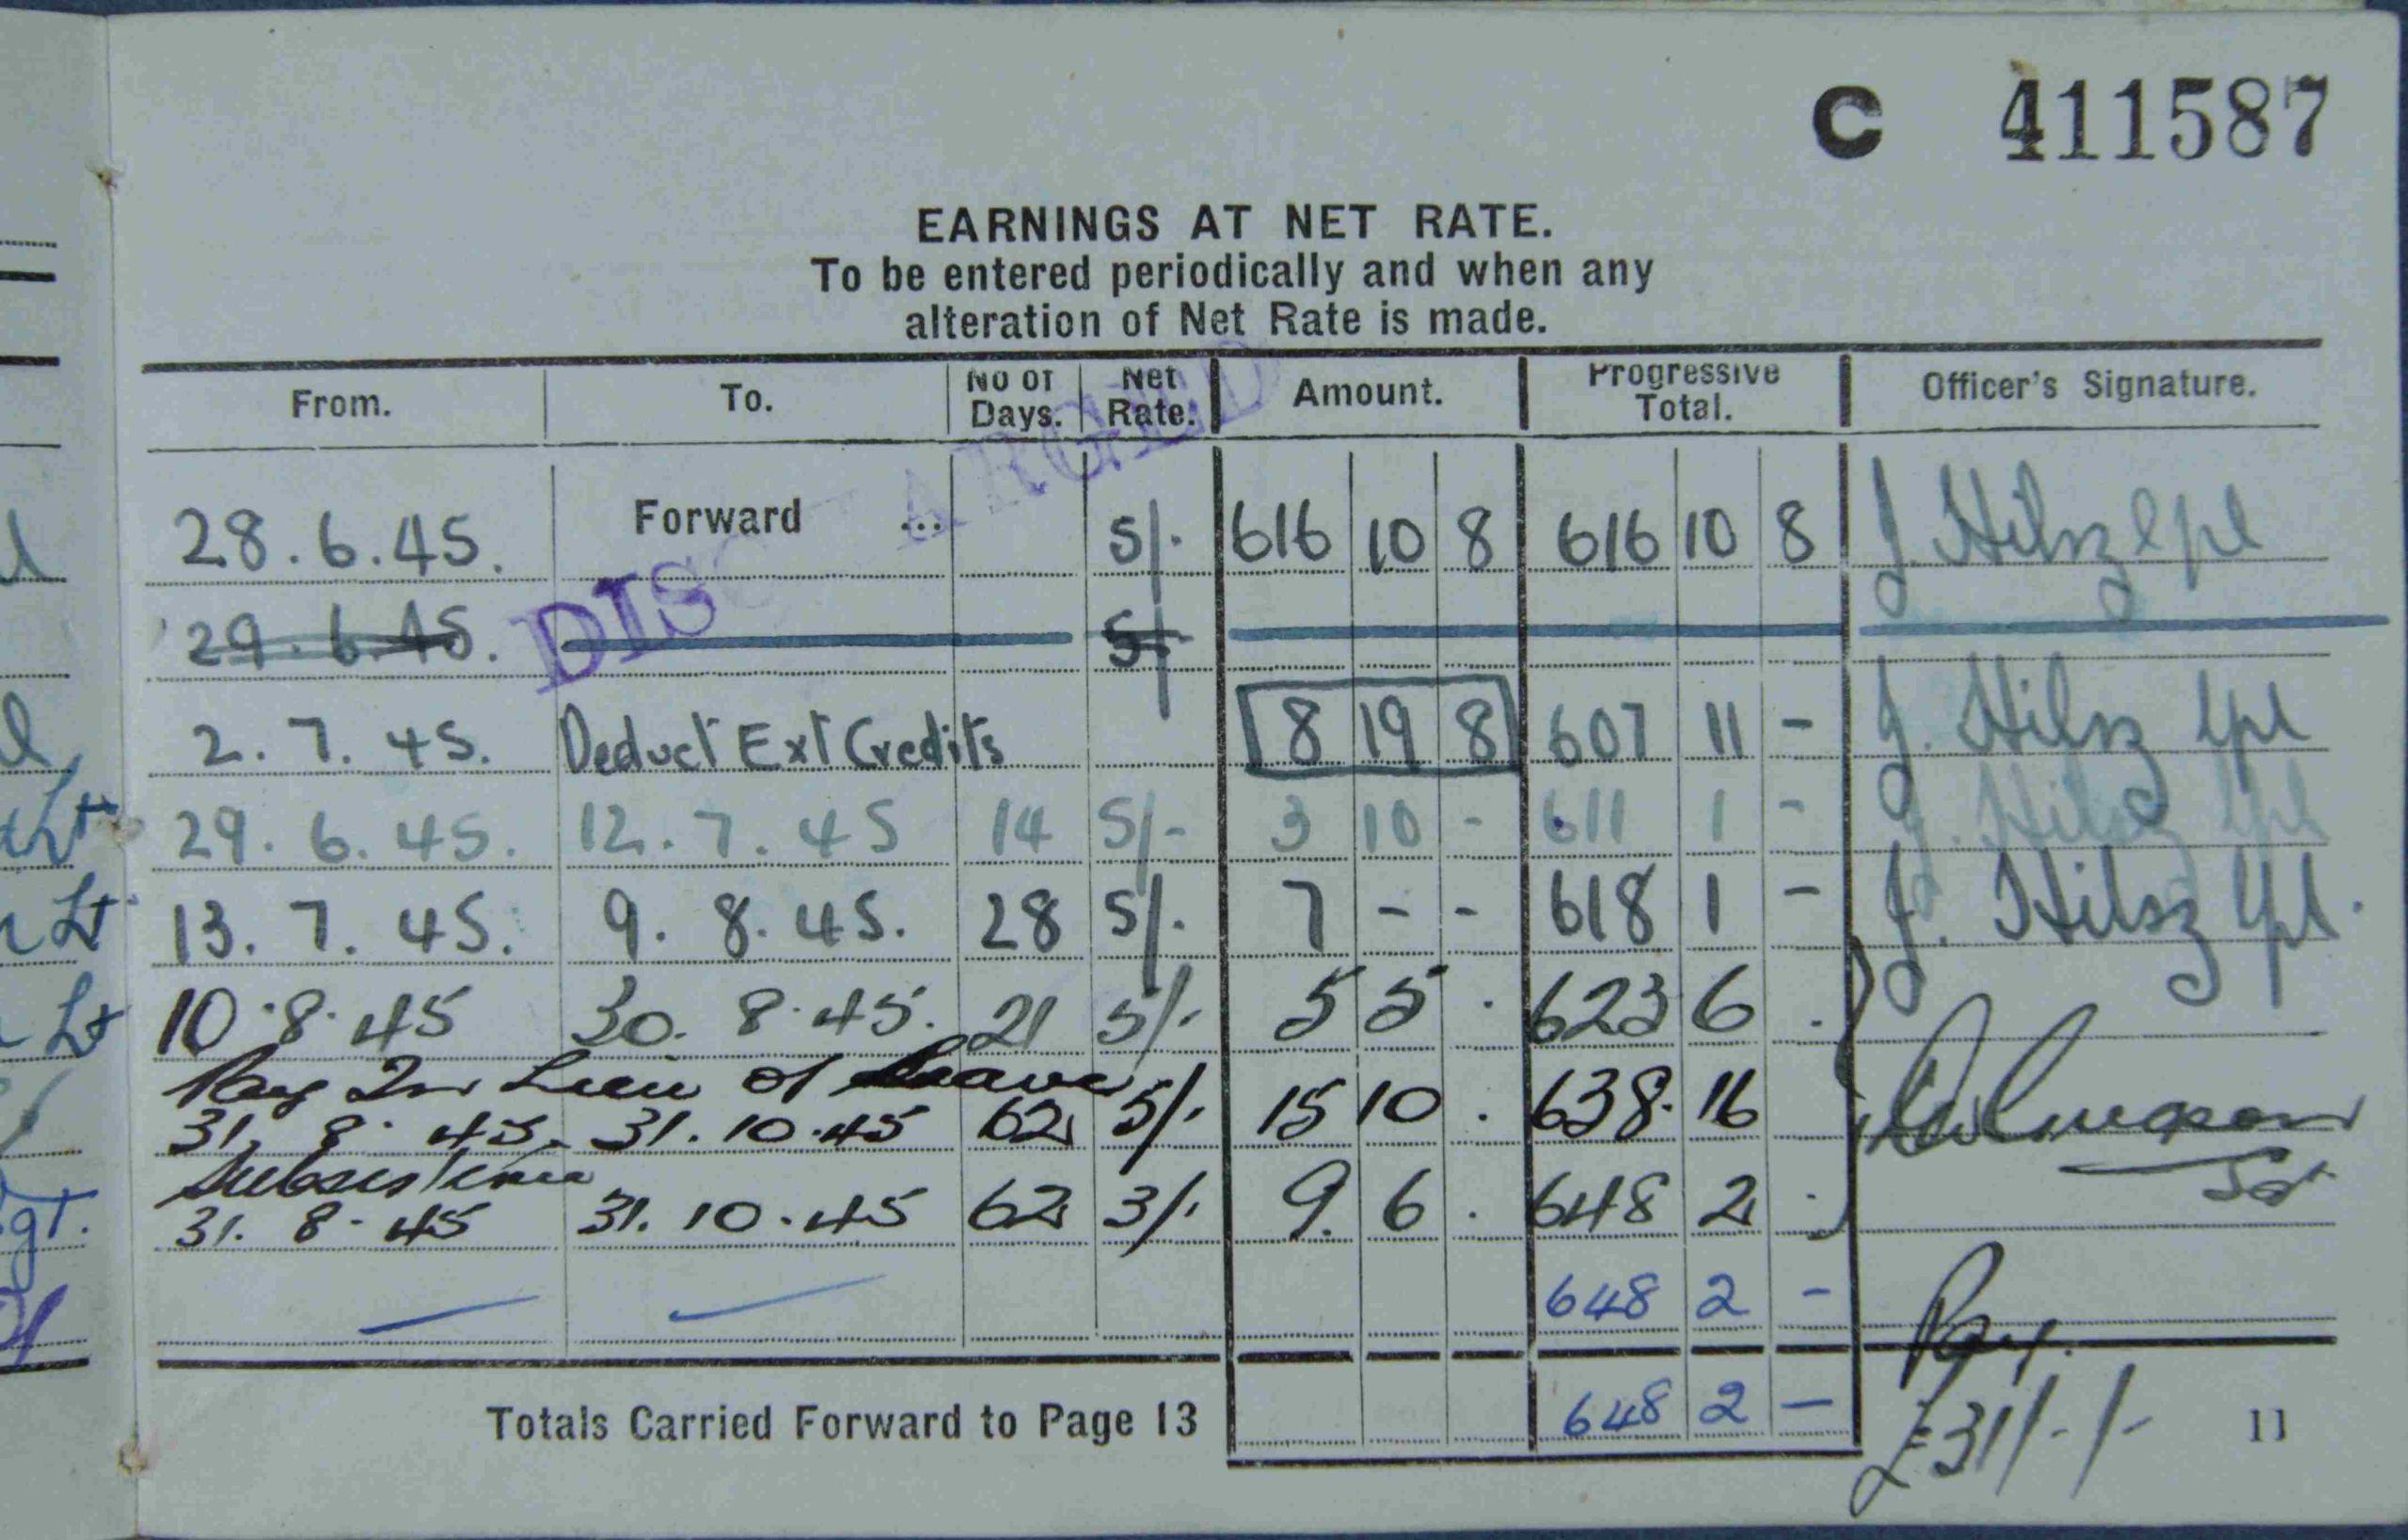 C 411587
EARNINGS AT NET RATE.
To be entered periodically and when any
alteration of Net Rate is made.
From. To. No of Days. Net Rate. Amount. Progressive Total. Officer's Signature.
DISCHARGED
28.6.45. Forward ... 5/- 616 10 8 616 10 8 J. Hilsz Cpl
29.6.45. 5/-
2.7.45. Deduct Ext Credits 8 19 8 607 11 - J. Hilsz Cpl
29.6.45. 12.7.45 14 5/- 3 10 - 611 1 - J. Hilsz Cpl
13.7.45. 9.8.45. 28 5/- 7 - - 618 1 - J. Hilsz Cpl.
10.8.45 30.8.45. 21 5/- 5 5 . 623 6 .
Pay In Lieu of Leave
31.8.45. 31.10.45 62 5/- 15 10 . 638. 16
Subsistence Sgt
31.8.45 31.10.45 62 3/- 9. 6 . 648 2 .
648 2 -
Pay.
Totals Carried Forward to Page 13 648 2 - £31/-/-
11